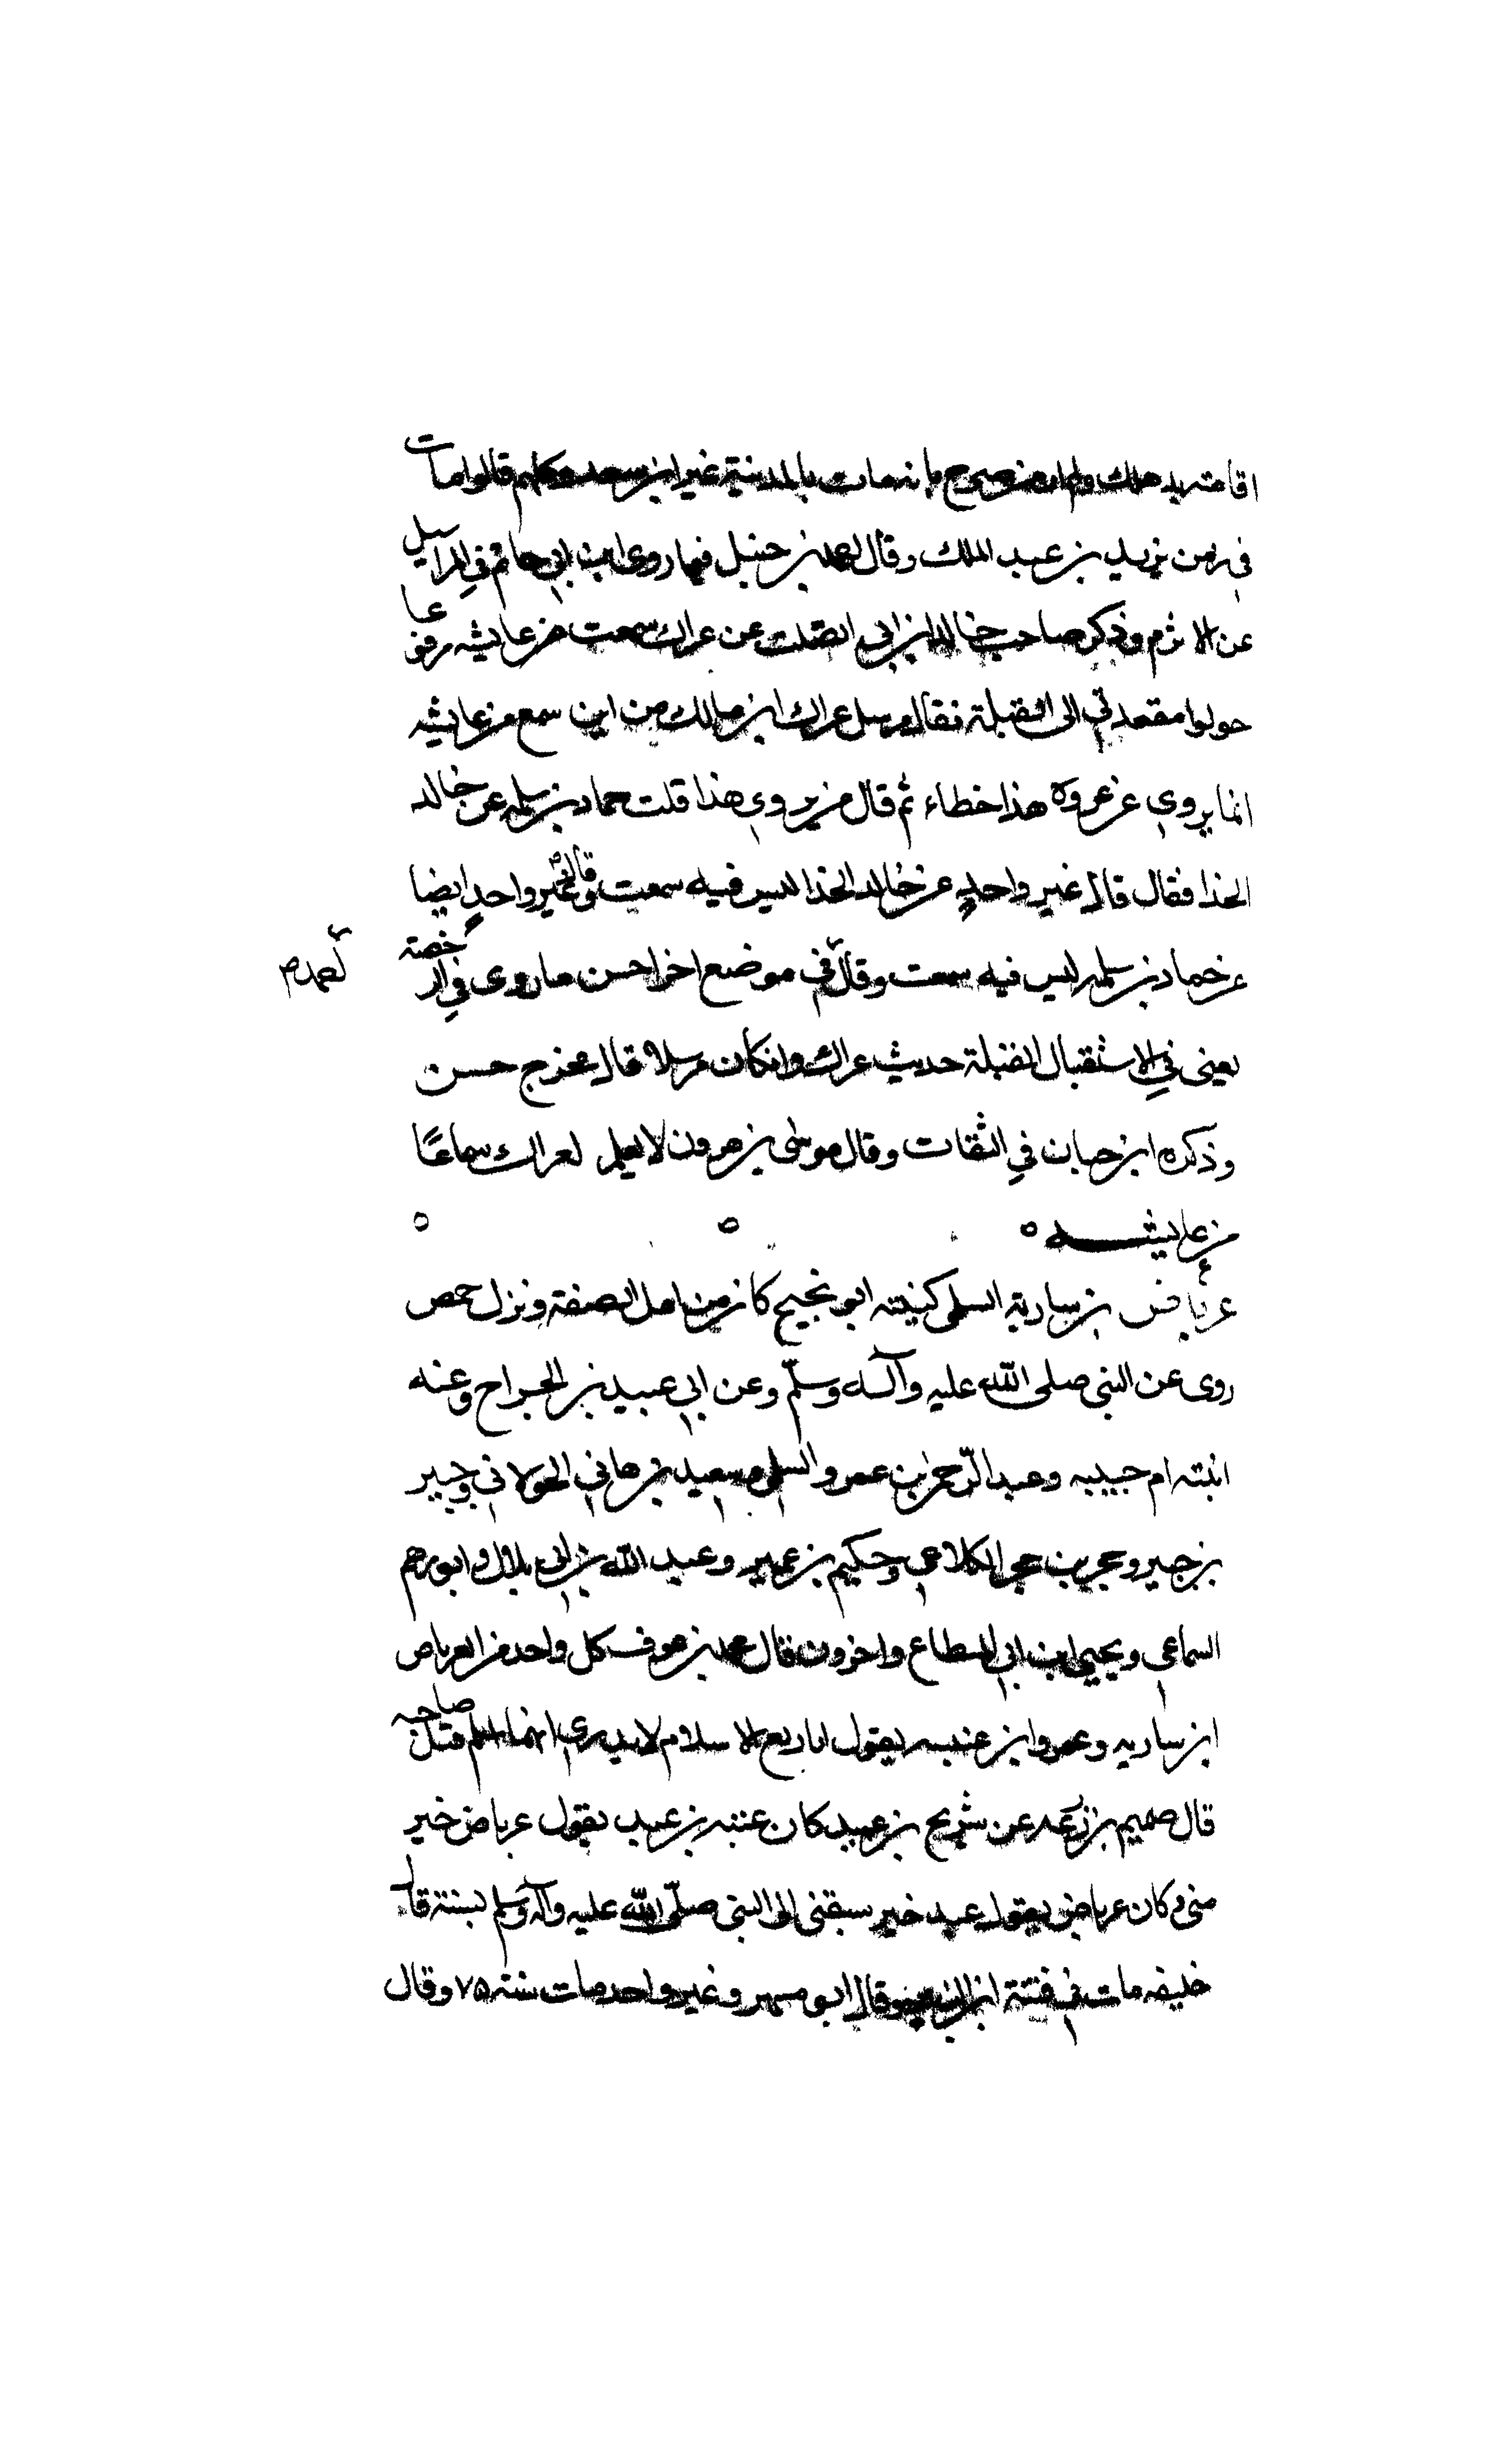 اقامته بدهلك ولم ار من صرح بانه مات بالمدينة غير ابن سعد وكلهم قالوا مات
في زمن يزيد بن عبد الملك وقال احمد بن حنبل فيما روى ابن ابي حاتم في المراسيل
عن الاثرم وذكر صاحب خالد ابن ابي الصلت عن عراك سمعت من عايشه مرفوعا
حولوا مقعدتي الى القبلة فقال مرسل عراك ابن مالك من اين سمع من عايشه
انما يروي عن عروة هذا خطاء ثم قال من يروي هذا قلت حماد بن سلمه عن خالد
الحذا فقال قال غير واحدٍ عن خالد الحذا ليس فيه سمعت وقال غير واحدٍ ايضا
عن حماد بن سلمه ليس فيه سمعت وقال في موضع اخر احسن ما روى في الرخصة
احمد
يعني في الاستقبال القبلة حديث عراك وانكان مرسلا قال مخرج حسن
وذكره ابن حبان في الثقات وقال موسى بن هرون لا يعلم لعراك سماعًا
من عايشه ه ه ه
عرباض بن سارية السلمي كنيته ابو نجيح كان من اهل الصفة ونزل حمص
روى عن النبي صلى الله عليه وآله وسلّم وعن ابي عبيد بن الجراح وعنه
ابنته ام حبيبه وعبد الرّحمن بن عمرو السلمي وسعيد بن هاني الخولاني وجبير
بن جبير وحجر بن حجر الكلاعي وحكيم بن عمير وعبد الله بن ابي بلال وابو رهم
السماعي ويحيى ابن ابي المطاع واخرون قال محمد بن عوف كل واحد من العرباض
ابن ساريه وعمرو ابن عنبسه يقول انا ربع الاسلام لا يدري ايهما اسلم قبل صاحبه
قال ضميم بن زرعه عن شريح بن عبيد كان عتبه بن عبيد يقول عرباض خير
مني وكان عرباض يقول عبيد خير سبقني الى النبي صلّى الله عليه وآله وسلم بسنة قال
خليفه مات في فتنة ابن الزبير وقال ابو مسهر وغير واحد مات سنة ۷۵ وقال